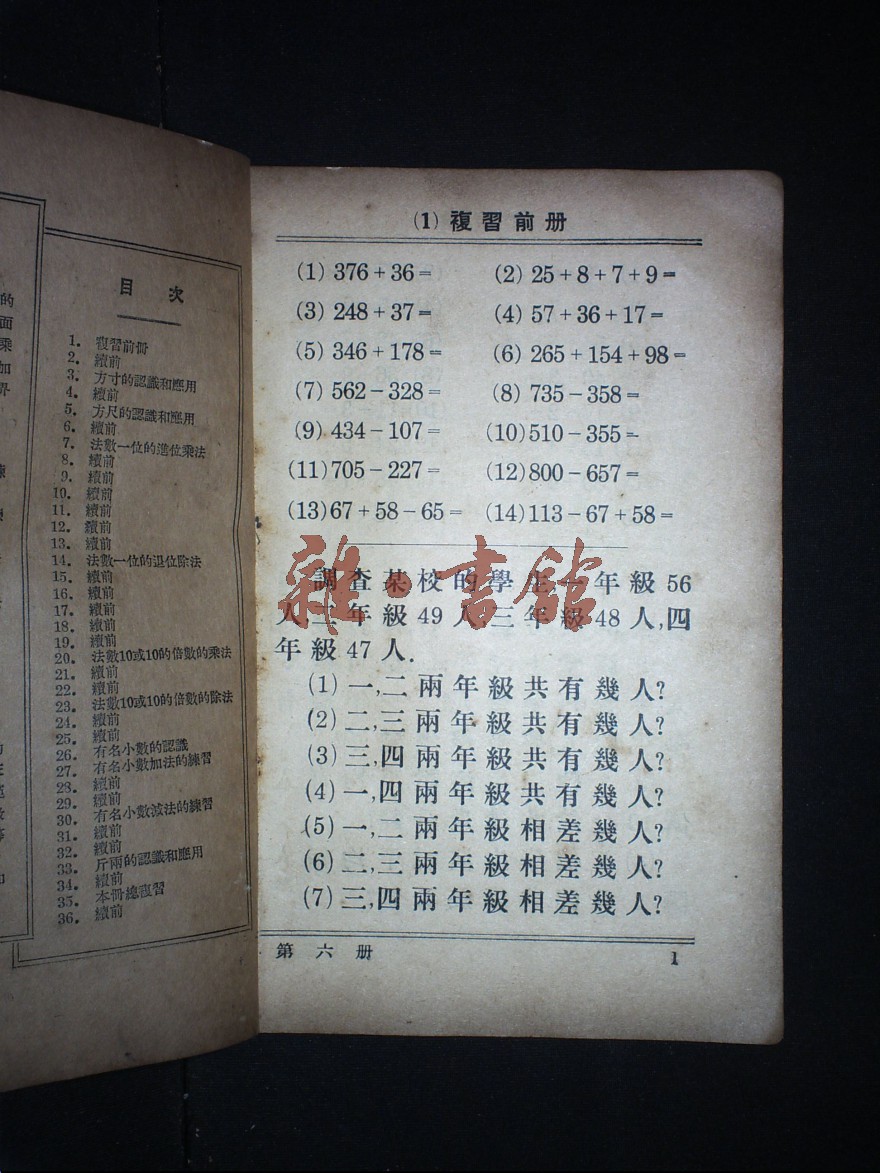 的
面
乘
加
目 次
1. 複習前冊
2. 續前
3. 方寸的認識和應用
4. 續前
5. 方尺的認識和應用
6. 續前
7. 法數一位的進位乘法
8. 續前
9. 續前
10. 續前
11. 續前
12. 續前
13. 續前
14. 法數一位的退位除法
15. 續前
16. 續前
17. 續前
18. 續前
19. 續前
20. 法數10或10的倍數的乘法
21. 續前
22. 續前
23. 法數10或10的倍數的除法
24. 續前
25. 續前
26. 有名小數的認識
27. 有名小數加法的練習
28. 續前
29. 續前
30. 有名小數減法的練習
31. 續前
32. 續前
33. 斤兩的認識和應用
34. 續前
35. 本冊總複習
36. 續前
(1) 複習前册
(1) 376+36=
(2) 25+8+7+9=
(3) 248+37=
(4) 57+36+17=
(5) 346+178=
(6) 265+154+98=
(7) 562-328=
(8) 735-358=
(9) 434-107=
(10) 510-355=
(11) 705-227=
(12) 800-657=
(13) 67+58-65=
(14) 113-67+58=
調查某校的學生一年級56
人,二年級49人,三年級48人,四
年級47人.
(1) 一,二兩年級共有幾人?
(2) 二,三兩年級共有幾人?
(3) 三,四兩年級共有幾人?
(4) 一,四兩年級共有幾人?
(5) 一,二兩年級相差幾人?
(6) 二,三兩年級相差幾人?
(7) 三,四兩年級相差幾人?
第六册
1
雜·書館